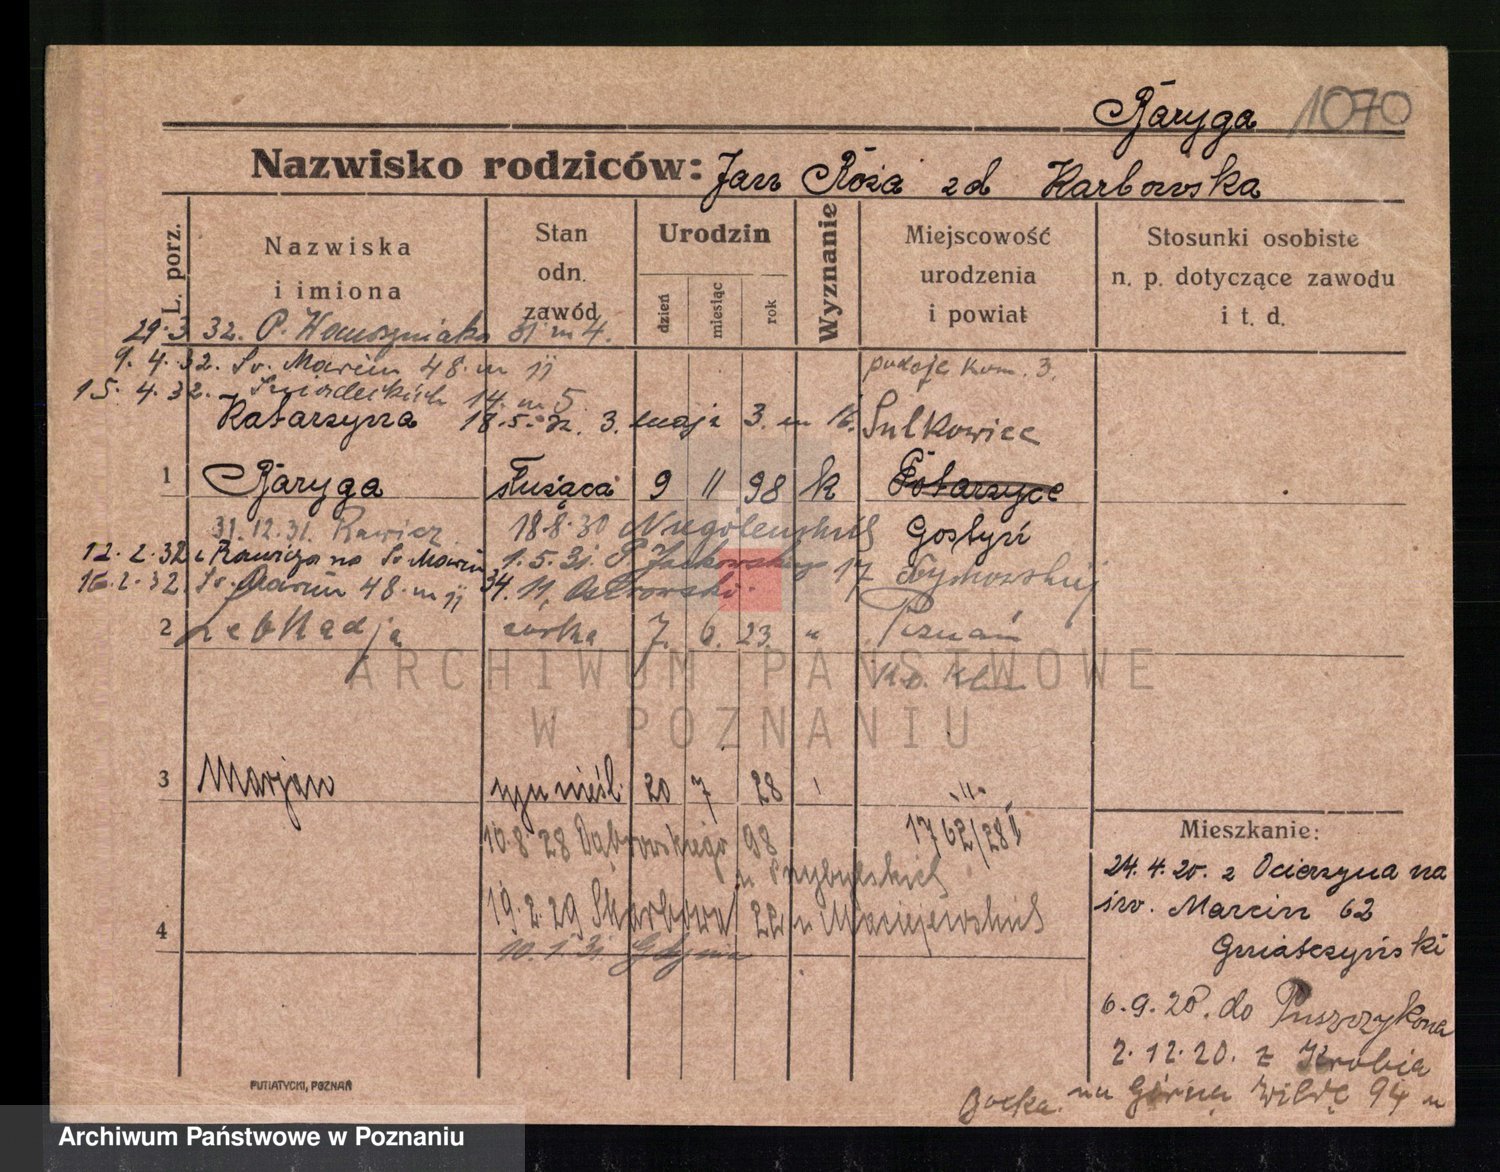 Raryga 1070
Nazwisko rodziców: Jan Róża zd Karbowska
L. porz.
Nazwiska i imiona
Stan odn. zawód
Urodzin
dzień
miesiąc
rok
Wyznanie
Miejscowość urodzenia i powiat
Stosunki osobiste n. p. dotyczące zawodu i t. d.
29.3.32. P. m 4.
9.4.32. Św. Marcin 48. m 11
podaje kom. 3.
15.4.32. Śniadeckich 14. m 5
Katarzyna 18.5.32. 3. maja 3. m
Sulkowice
1 Raryga służąca 9 11 98 k Potarzyce
31.12.31. Rawicz 18.8.30
Gostyń
12.2.32 z Rawicza na Św Marcin 1.5.31. P. Jackowskiego 17
16.2.32. Św. Marcin 48. m 11 34. 11,
2 córka 7. 6. 23. " Poznań
ARCHIWUM PAŃSTWOWE
W POZNANIU
3 Marjan syn nieśl. 20 7 28 " -"-
10.8.28 Dąbrowskiego 98
1762/28
u Przybylskich
19.2.29 Skarbowa 22 u Maciejewskich
4
10.1.31 Gdynia
Mieszkanie:
24.4.20. z Ocierzyna na
św. Marcin 62
Gniatczyński
6.9.20. do Puszczykowa
2.12.20. z Krobia
na Górną Wildę 94 u
Bocka.
PUTIATYCKI, POZNAŃ
Archiwum Państwowe w Poznaniu